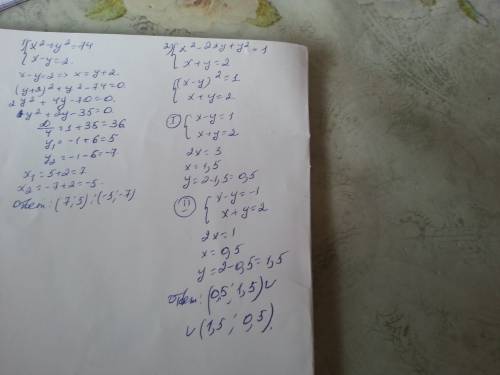 1) { x²+y²=74
x-y=2
x-y=2 => x=y+2
(y+2)²+y²-74=0
2y²+4y-70=0
y²+2y-35=0
D/4=1+35=36
y₁=-1+6=5
y₂=-1-6=-7
x₁=5+2=7
x₂=-7+2=-5
Ответ: (7;5); (-5;-7)
2) { x²-2xy+y²=1
x+y=2
{ (x-y)²=1
x+y=2
I { x-y=1
x+y=2
2x=3
x=1,5
y=2-1,5=0,5
II { x-y=-1
x+y=2
2x=1
x=0,5
y=2-0,5=1,5
Ответ: (0,5; 1,5)∪
∪(1,5; 0,5).